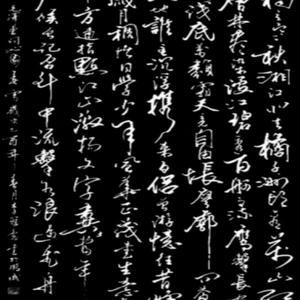 立寒秋湘江北去橘子洲头看万山
层林尽染漫江碧透百舸争流鹰击长
浅底万类霜天竞自由怅寥廓问
地谁主沉浮携来百侣曾游忆往昔
岁月稠恰同学少年风华正茂书生意
方遒指点江山激扬文字粪土当年
侯曾记否到中流击水浪遏飞舟